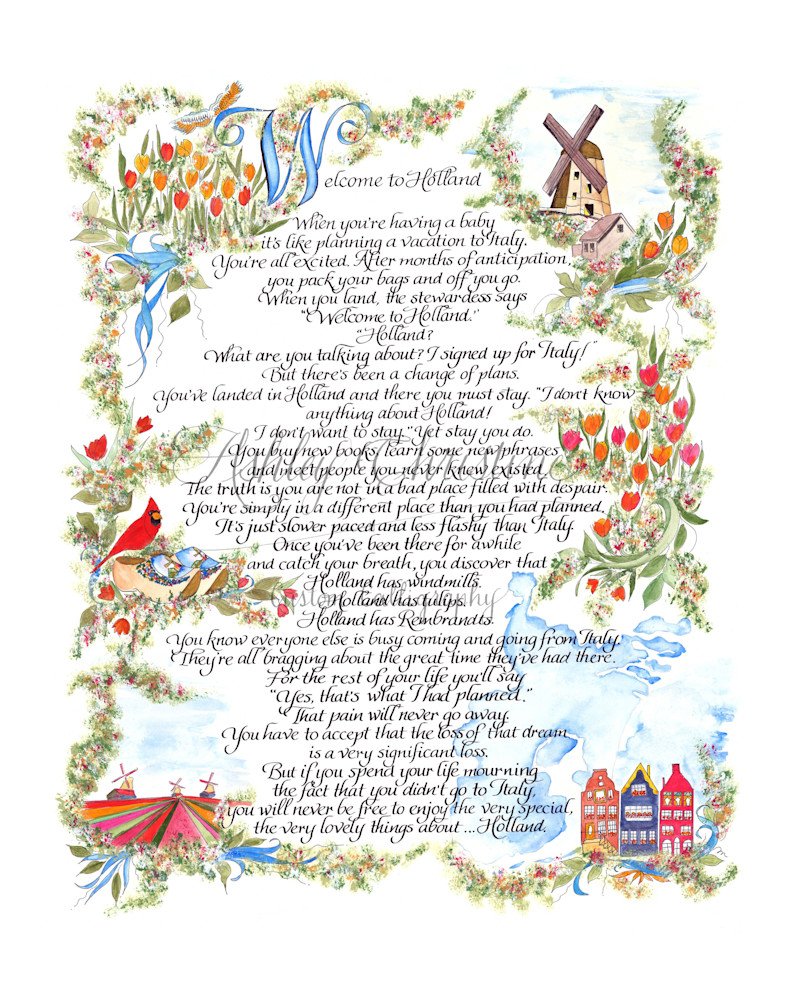 Welcome to Holland
When you're having a baby
it's like planning a vacation to Italy.
You're all excited. After months of anticipation,
you pack your bags and off you go.
When you land, the stewardess says
"Welcome to Holland."
"Holland?
What are you talking about? I signed up for Italy!"
But there's been a change of plans.
You've landed in Holland and there you must stay. "I don't know
anything about Holland!
I don't want to stay." Yet stay you do.
Ashley Christine
You buy new books, learn some new phrases
and meet people you never knew existed.
The truth is you are not in a bad place filled with despair.
You're simply in a different place than you had planned.
It's just slower paced and less flashy than Italy.
Once you've been there for awhile
and catch your breath, you discover that
Holland has windmills.
Custom Calligraphy
Holland has tulips.
Holland has Rembrandts.
You know everyone else is busy coming and going from Italy.
They're all bragging about the great time they've had there.
For the rest of your life you'll say
"Yes, that's what I had planned."
That pain will never go away.
You have to accept that the loss of that dream
is a very significant loss.
But if you spend your life mourning
the fact that you didn't go to Italy,
you will never be free to enjoy the very special,
the very lovely things about ... Holland.